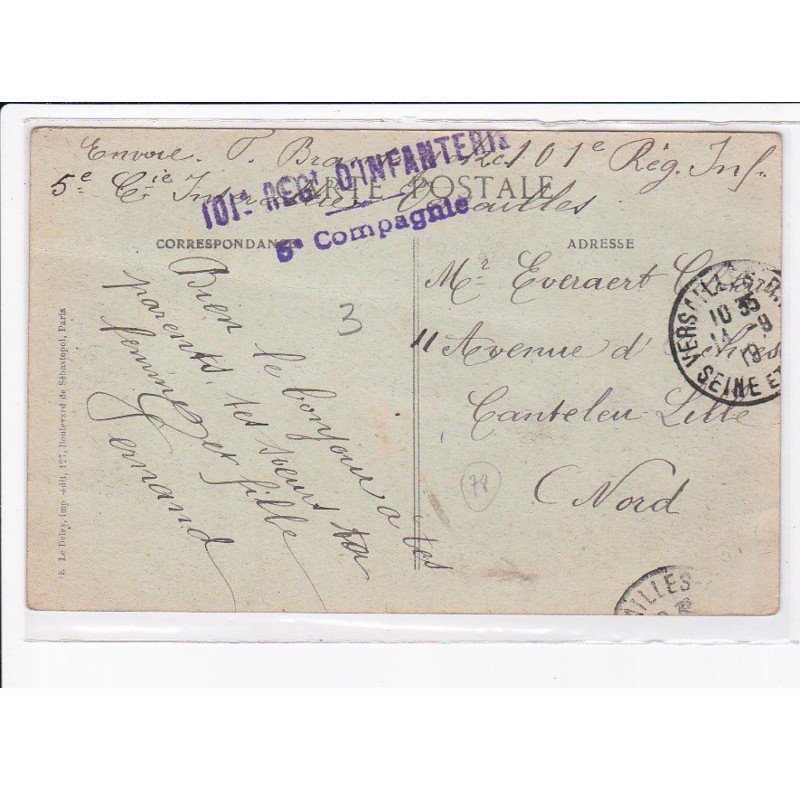 Envoie. F.
101e Rég. Inf.
5e Cie
Versailles
101e REGt D'INFANTERIE
5e Compagnie
CARTE POSTALE
CORRESPONDANCE
ADRESSE
Bien le bonjour a tes
parents, tes soeurs ta
femme et fille
Fernand
3
Mr Everaert
11 Avenue d'
Canteleu-Lille
Nord
78
VERSAILLES
10 35
14 -9
19
SEINE ET
AILLES
E. Le Deley, imp.-édit., 127, Boulevard de Sébastopol, Paris